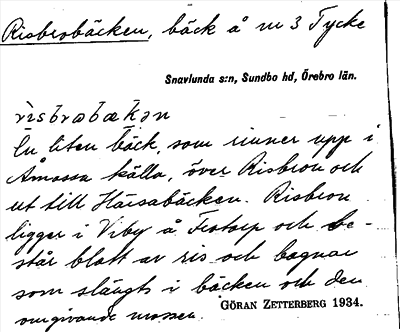 Risbrobäcken, bäck å m 3 Tycke
Snavlunda s:n, Sundbo hd, Örebro län.
rìsbrobækən
En liten bäck, som rinner upp i
Åmossa källa, över Risbron och
ut till Hårsabäcken. Risbron
ligger i Viby å Frotorp och be-
står blott av ris och bagnar
som slängts i bäcken och den
omgivande mossen.
GÖRAN ZETTERBERG 1934.